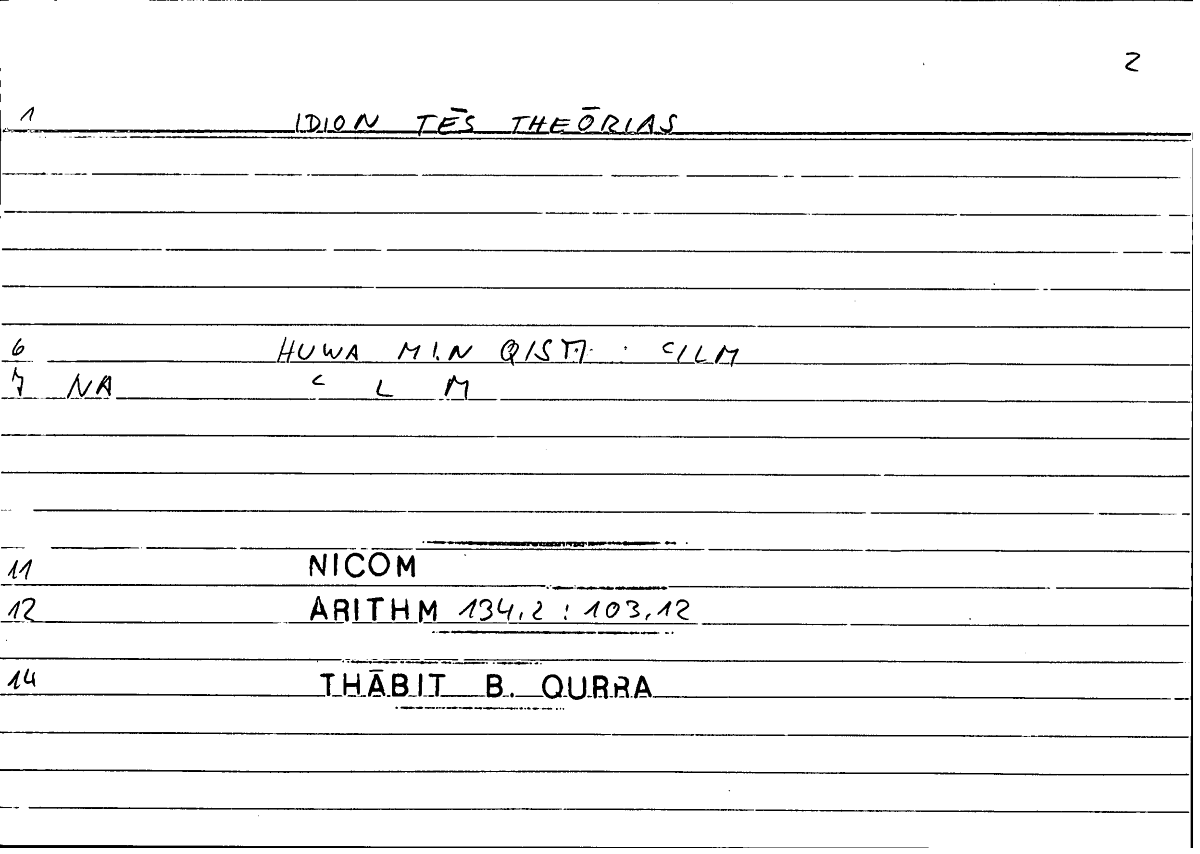 2
1 IDION TĒS THEŌRIAS
6 HUWA MIN : ᶜILM
7 NA ᶜ L M
11 NICOM
12 ARITHM 134,2 : 103,12
14 THĀBIT B. QURRA